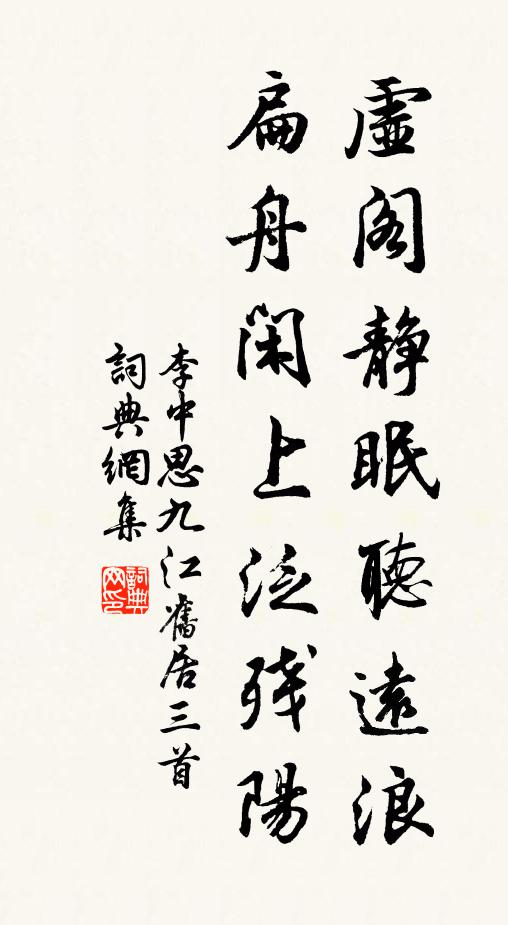 虛閣靜眠聽遠浪
扁舟閑上泛残陽
李中思九江舊居三首
詞典網集
詞典网印